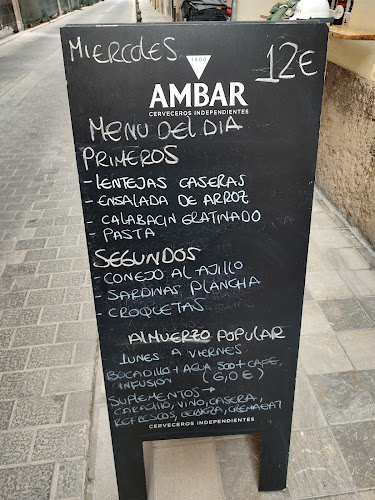 MIERCOLES
12€
1900
AMBAR
CERVECEROS INDEPENDIENTES
MENU DEL DIA
PRIMEROS
- LENTEJAS CASERAS
- ENSALADA DE ARROZ
- CALABACIN GRATINADO
- PASTA
SEGUNDOS
- CONEJO AL AJILLO
- SARDINAS PLANCHA
- CROQUETAS
ALMUERZO POPULAR
LUNES A VIERNES
BOCADILLO + AGUA 500 + CAFE
INFUSION (6,0€)
SUPLEMENTOS →
CARAJILLO, VINO, CASERA,
REFRESCOS, CERVEZA, CREMAET
CERVECEROS INDEPENDIENTES